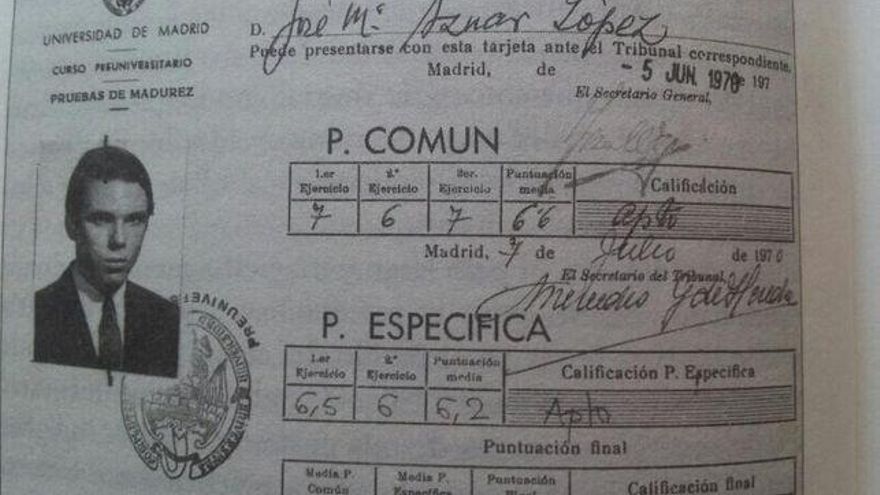 UNIVERSIDAD DE MADRID
CURSO PREUNIVERSITARIO
PRUEBAS DE MADUREZ
D. José Mª Aznar López
Puede presentarse con esta tarjeta ante el Tribunal correspondiente.
Madrid, de - 5 JUN. 1970 de 197
El Secretario General,
P. COMUN
1.er Ejercicio 2.º Ejercicio 3er. Ejercicio Puntuación media Calificación
7 6 7 6 6 apto
Madrid, 7 de Julio de 1970
El Secretario del Tribunal,
Mercedes
PREUNIVER
P. ESPECIFICA
1.er Ejercicio 2.º Ejercicio Puntuación media Calificación P. Específica
6,5 6 6,2 Apto
Puntuación final
Media P. Común Media P. Específica Puntuación Calificación final